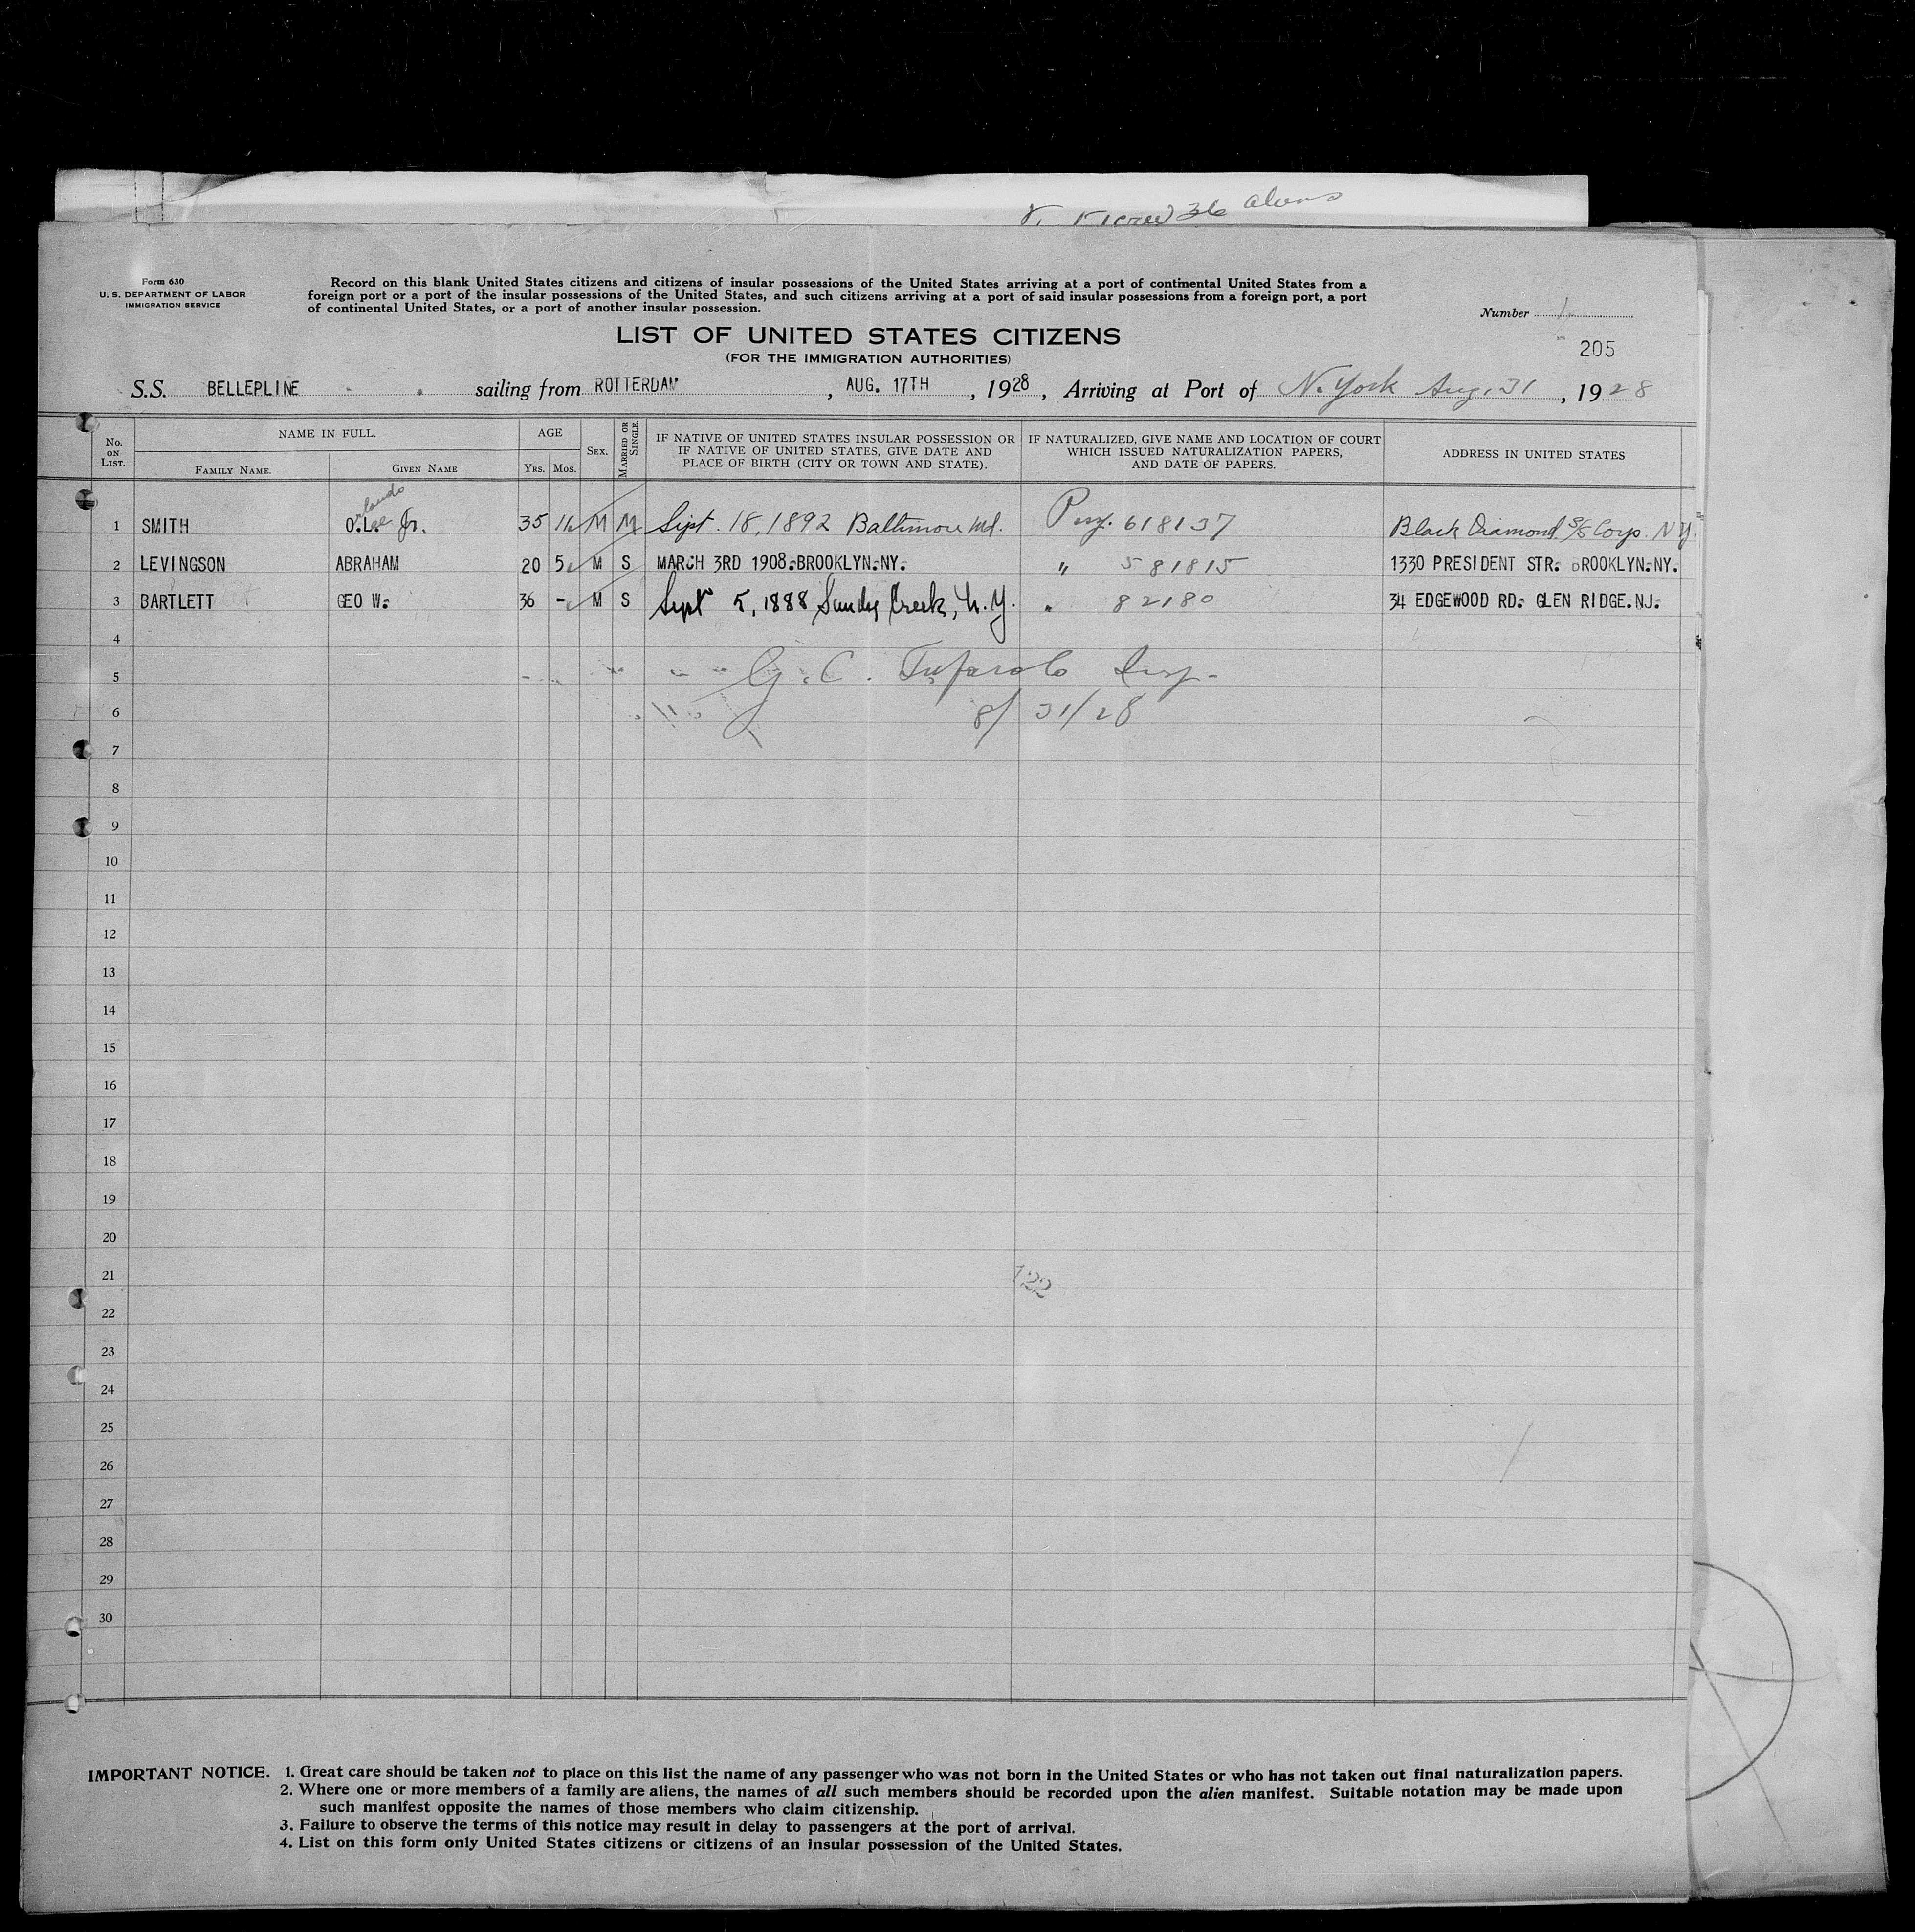 crew 36 aliens
Form 630
U. S. DEPARTMENT OF LABOR
IMMIGRATION SERVICE
Record on this blank United States citizens and citizens of insular possessions of the United States arriving at a port of continental United States from a
foreign port or a port of the insular possessions of the United States, and such citizens arriving at a port of said insular possessions from a foreign port, a port
of continental United States, or a port of another insular possession.
Number 1
LIST OF UNITED STATES CITIZENS
(FOR THE IMMIGRATION AUTHORITIES)
205
S.S. BELLEPLINE sailing from ROTTERDAM, AUG. 17TH, 1928, Arriving at Port of N. York Aug. 31, 1928
No. ON LIST. NAME IN FULL. FAMILY NAME. GIVEN NAME AGE YRS. MOS. SEX. MARRIED OR SINGLE. IF NATIVE OF UNITED STATES INSULAR POSSESSION OR IF NATIVE OF UNITED STATES, GIVE DATE AND PLACE OF BIRTH (CITY OR TOWN AND STATE). IF NATURALIZED, GIVE NAME AND LOCATION OF COURT WHICH ISSUED NATURALIZATION PAPERS, AND DATE OF PAPERS. ADDRESS IN UNITED STATES
rlando
1 SMITH O. Lee Jr. 35 11 M M Sept. 18, 1892 Baltimore Md. 618137 Black Diamond S/S Corp. N Y.
2 LEVINGSON ABRAHAM 20 5 M S MARCH 3RD 1908.BROOKLYN.NY. " 581815 1330 PRESIDENT STR. BROOKLYN.NY.
3 BARTLETT GEO W. 36 - M S Sept 5, 1888 Sandy Creek, N.Y. " 82180 34 EDGEWOOD RD. GLEN RIDGE.NJ.
4
5 G. C. Insp.
6 8/31/28
7
8
9
10
11
12
13
14
15
16
17
18
19
20
21 122
22
23
24
25
26
27
28
29
30
IMPORTANT NOTICE. 1. Great care should be taken not to place on this list the name of any passenger who was not born in the United States or who has not taken out final naturalization papers.
2. Where one or more members of a family are aliens, the names of all such members should be recorded upon the alien manifest. Suitable notation may be made upon
such manifest opposite the names of those members who claim citizenship.
3. Failure to observe the terms of this notice may result in delay to passengers at the port of arrival.
4. List on this form only United States citizens or citizens of an insular possession of the United States.